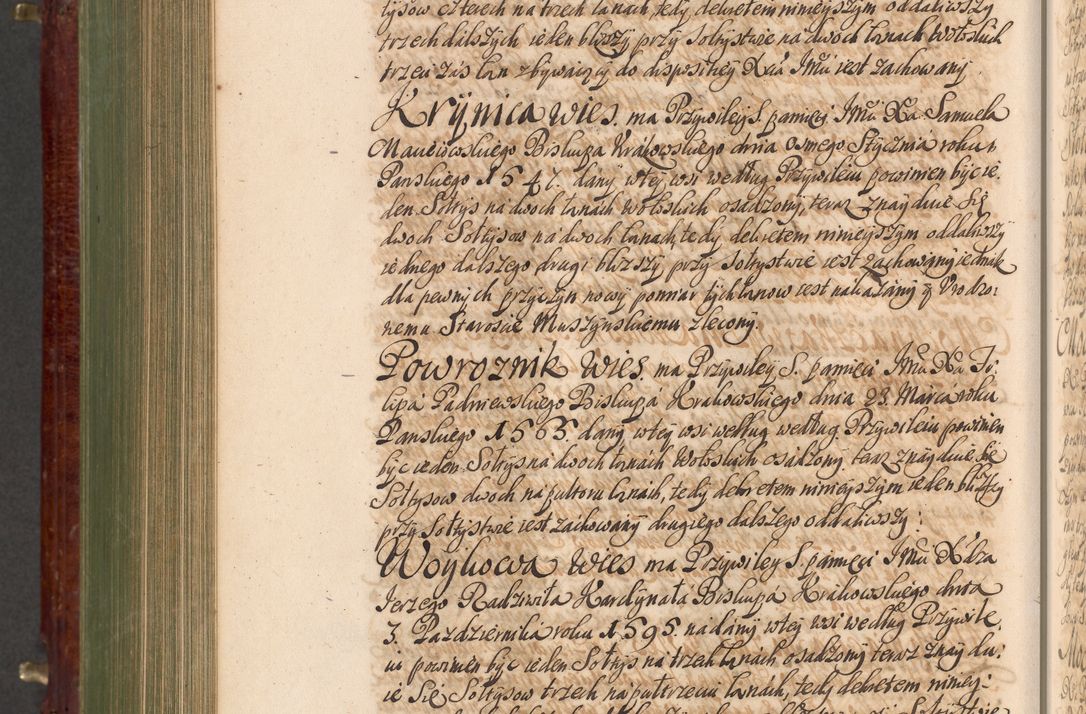 tysow czterech na trzech łanach, tedy dekretem ninieyszym oddaliwszy
trzech dalszych ieden bliszy przy Sołtystwie na dwoch łanach Wołoskich
trzeci zaś łan zbywaiący do dispozitiey Xcia Jmu iest zachowany
Kryjnica Wies. ma Przywiley S. pamięci Jmu Xa Samuela
Macieiowskiego Biskupa Krakowskiego dnia osmego Stycznia roku
Panskiego 1547. dany w tey wsi według Przywileiu powinien być ie,
den Sołtys na dwoch łanach Wołoskich osadzony, teraz znayduie się
dwoch Sołtysow na dwoch łanach, tedy dekretem ninieyszym oddaliwszy
iednego dalszego drugi blizszy przy Sołtystwie iest zachowany iednak
dla pewnych przyczyn nowy pomiar tych łanow iest nakazany y Urodzo:
nemu Staroscie Muszynskiemu zlecony.
Powroznik Wies. ma Przywiley S. pamięci Jmu Xa Fi:
lipa Padniewskiego Biskupa Krakowskiego dnia 23 Marca roku
Panskiego 1565. dany w tey wsi według według Przywileiu powinien
być ieden Sołtys na dwoch łanach Wołoskich osadzony teraz znayduie sie
Sołtysow dwoch na pułtoru łanach, tedy dekretem ninieyszym ieden bliszy
przy Sołtystwie iest zachowany drugiego dalszego oddaliwszy:
Woykowa Wies ma Przywiley S. pamięci Jmu X'dza
Jerzego Radziwiła Kardynała Biskupa Krakowskiego dnia
3. Pazdziernika roku 1595. nadany w tey wsi według Przywile,
iu powinien być ieden Sołtys na trzech łanach osadzony teraz znaydu:
ie się Sołtysow trzech na pułtrzeciu łanach, tedy dekretem niniey: